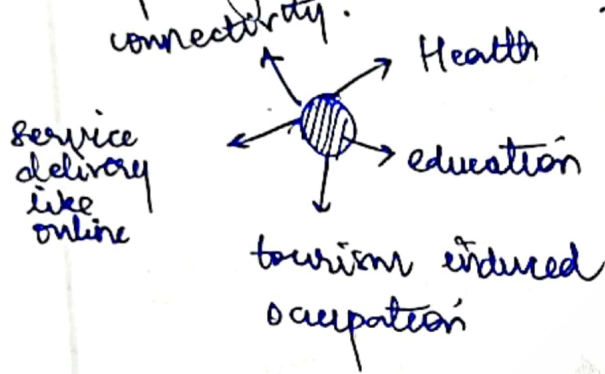 connectivity.
Health
service
delivery
like
online
education
tourism induced
occupation